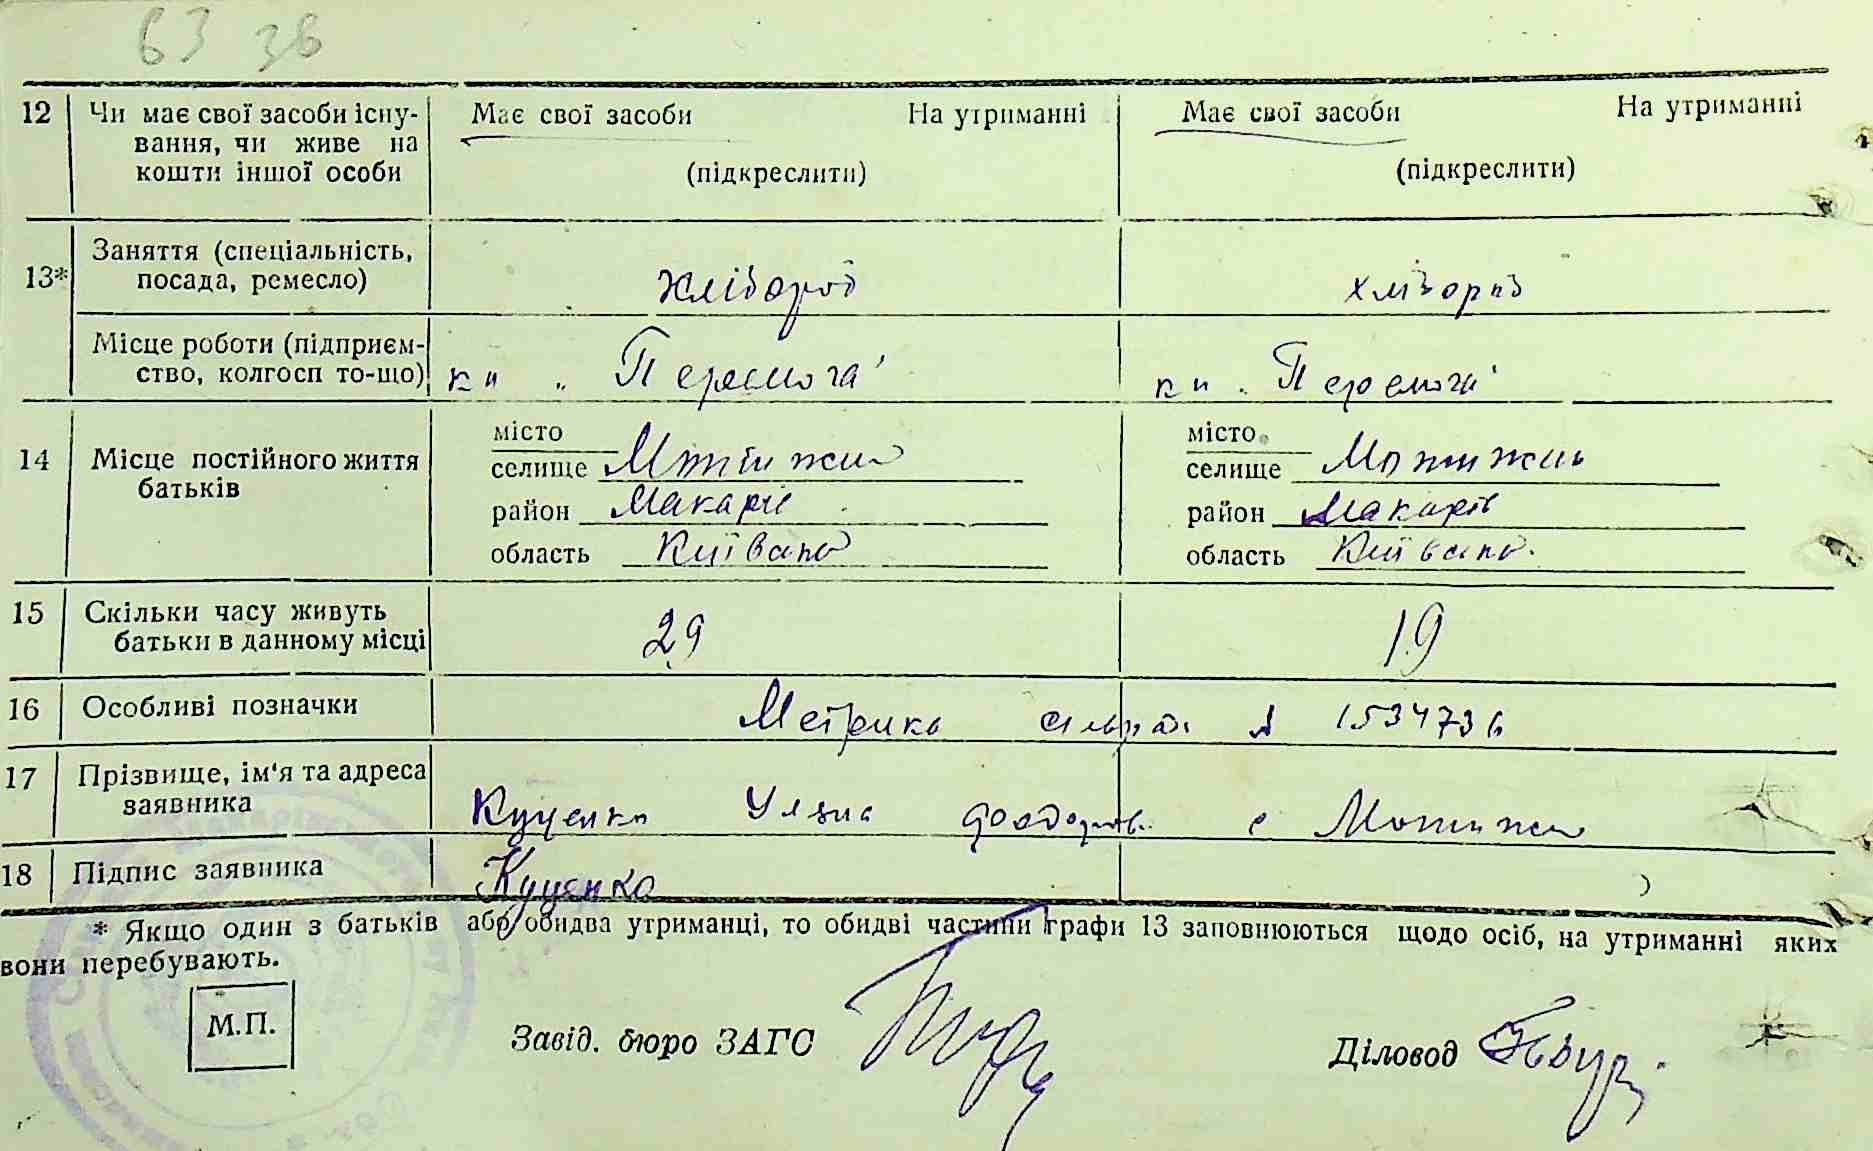 63 зв
12 Чи має свої засоби існу- Має свої засоби На утриманні Має свої засоби На утриманні
вання, чи живе на
кошти іншої особи (підкреслити) (підкреслити)
Заняття (спеціальність,
13* посада, ремесло) хлібороб хлібороб
Місце роботи (підприєм-
ство, колгосп то-що) "Перемога" "Перемога"
місто місто
14 Місце постійного життя селище Мотижин селище Мотижин
батьків район Макарів район Макарів
область Київська область Київська
15 Скільки часу живуть
батьки в данному місці 29 19
16 Особливі позначки Метрика 1534736
17 Прізвище, ім'я та адреса
заявника Куценко Уляна с Мотижин
18 Підпис заявника Куценко
* Якщо один з батьків або обидва утриманці, то обидві частини графи 13 заповнюються щодо осіб, на утриманні яких
вони перебувають.
М.П.
Завід. бюро ЗАГС Діловод